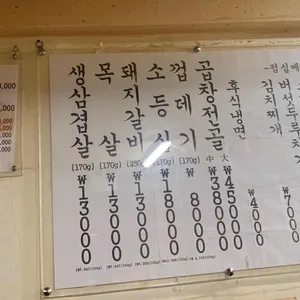 생삼겹살 (170g) ₩13000
목살 (170g) ₩13000
돼지갈비 (250g) ₩13000
소등심 (170g) ₩18000
껍데기 ₩8000
곱창전골 中 ₩38000 大 ₩45000
후식냉면 ₩4000
-점심메
김치찌개
버섯두루치
₩700